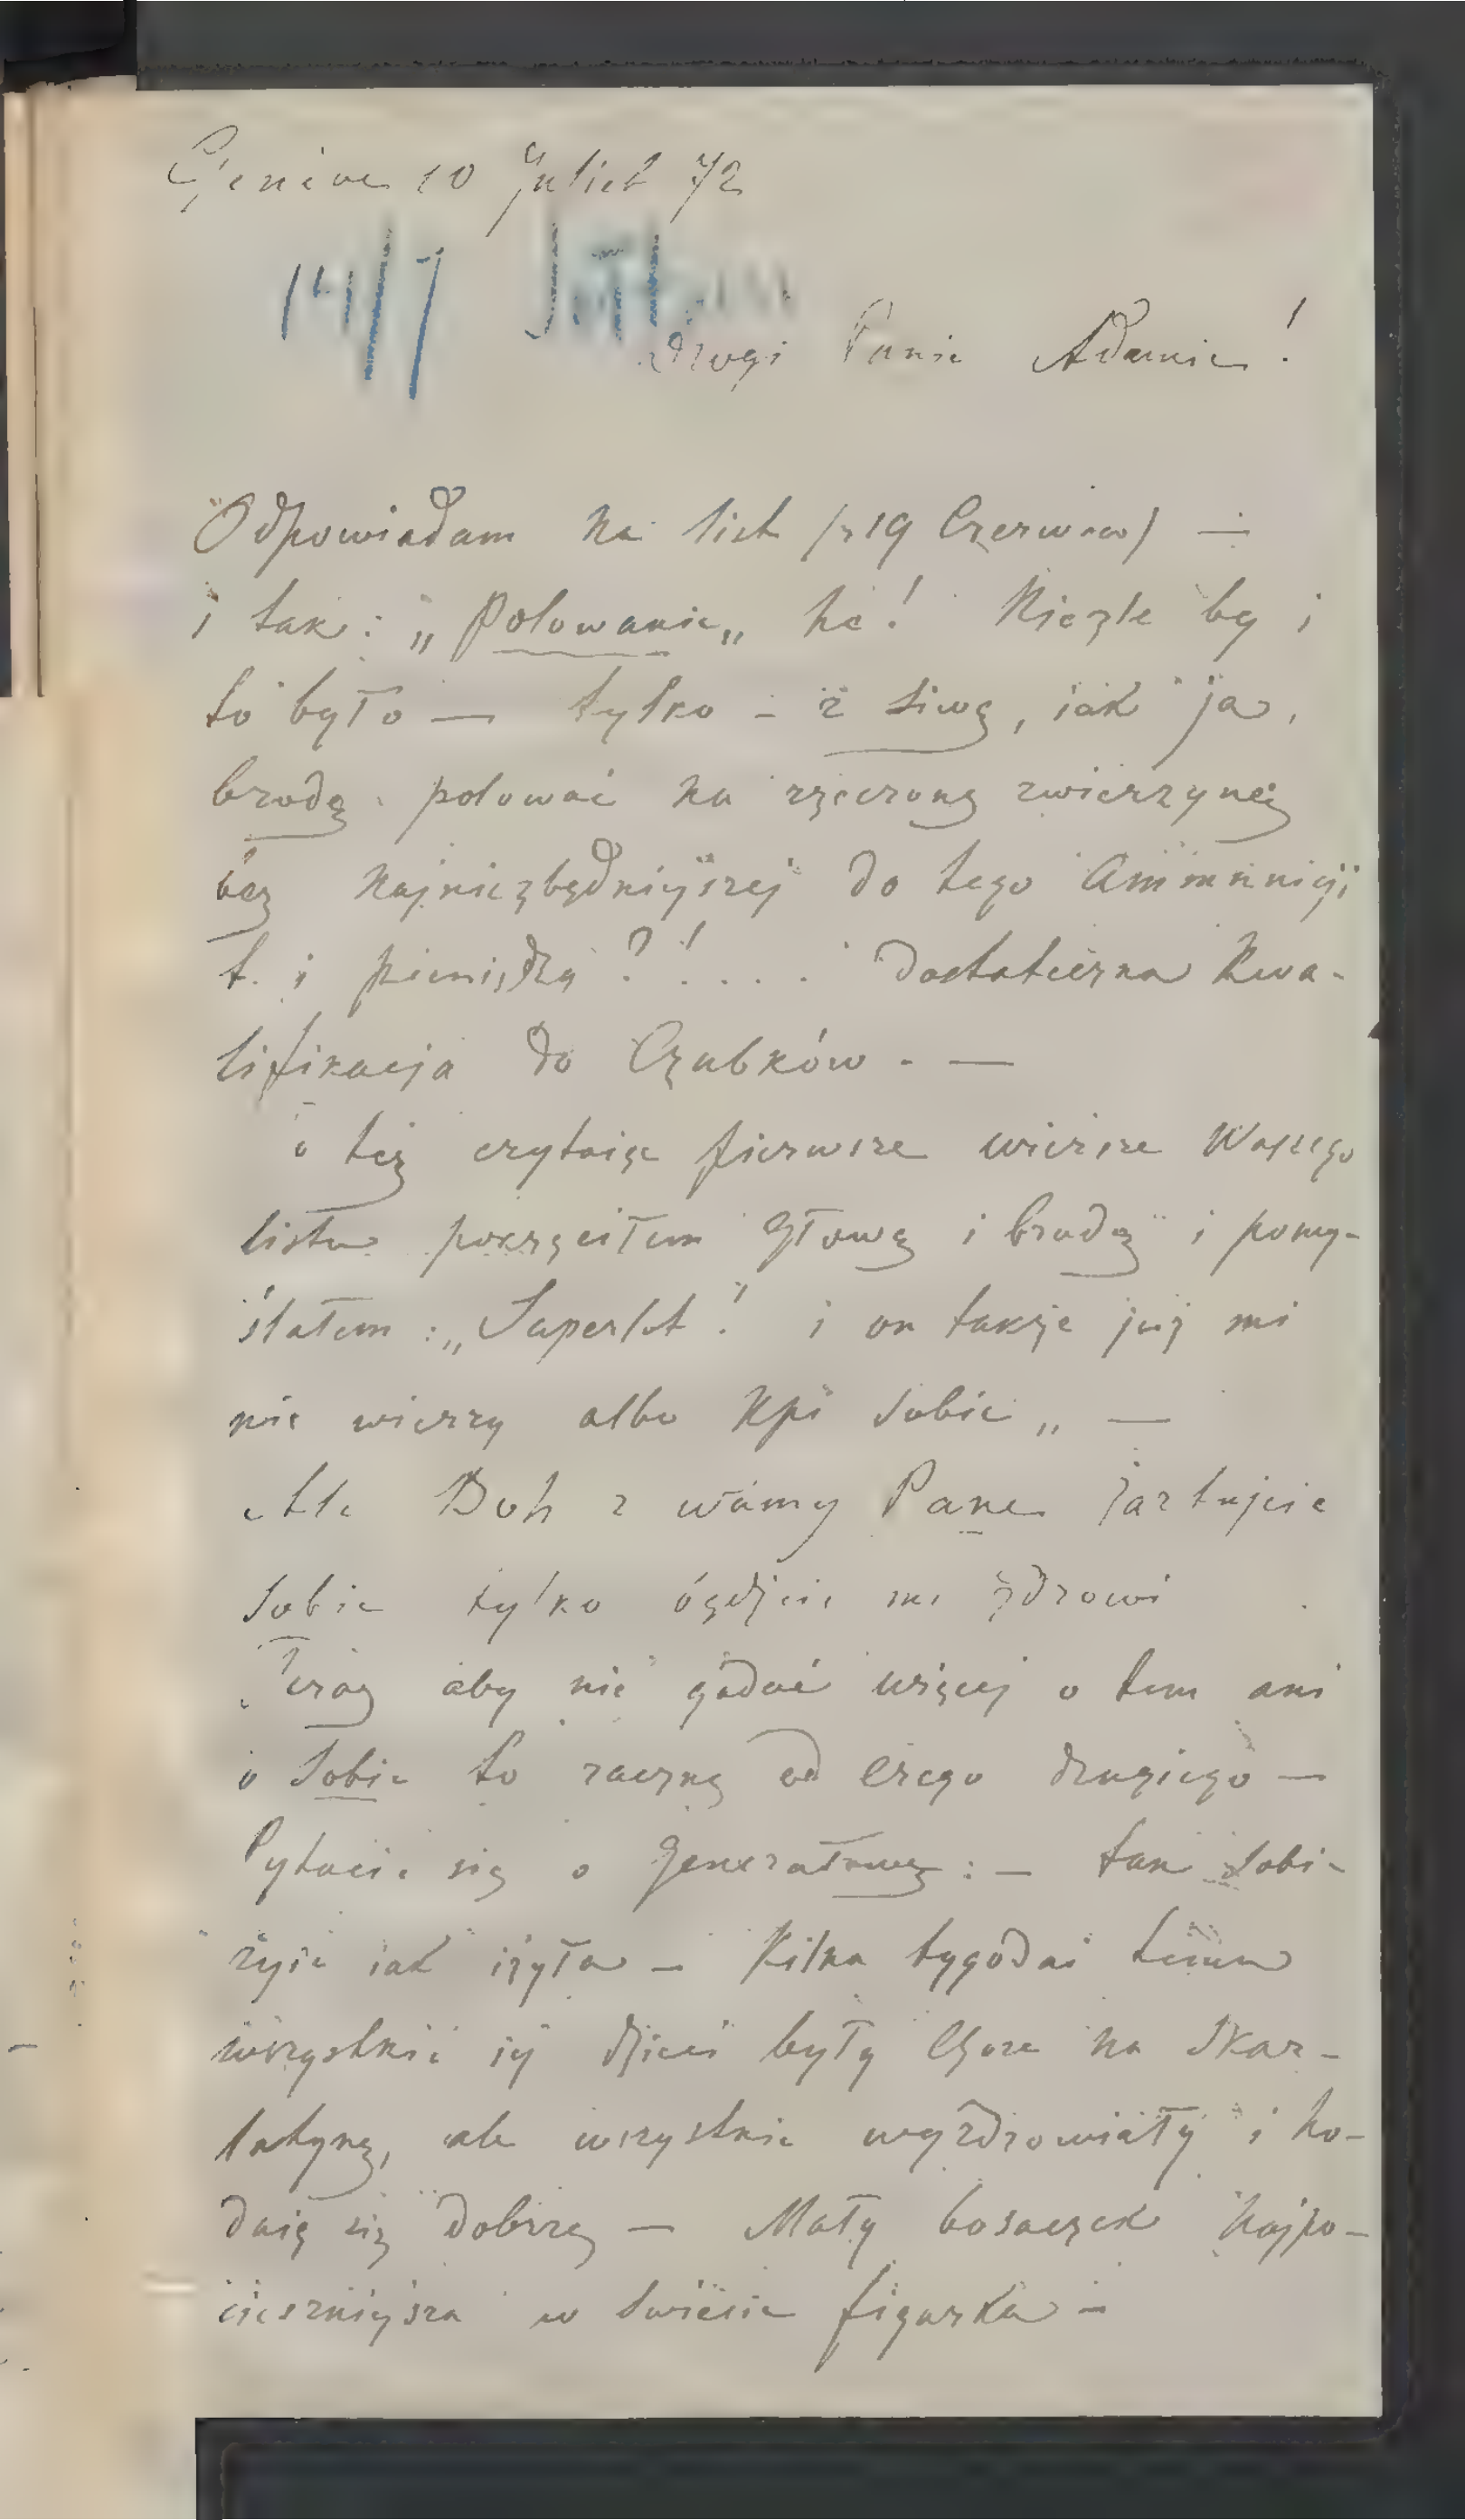 Genève 10 Juliet 72
14/7
Drogi Panie Adamie!
Odpowiadam na list (z 19 Czerwca) —
i tak: „Polowanie„ he! Niezle by i
to było — tylko - z siwą, iak ja,
brodą polować na rzeczoną zwierzynę
bez najniezbędniejszej do tego Ammunicji
t. i pieniędzy?!.... dostateczna kwa-
lifikacja do Czubków. —
o też czytaiąc pierwsze wiersze Waszego
listu pokręciłem głową i brodą i pomy-
ślałem: „Saperlot! i on także już mi
nie wierzy albo kpi sobie„ —
Ale Boh z wamy Pane żartujcie
sobie tylko bądźcie mi zdrowi
Teraz aby nie gadać więcej o tem ani
o sobie to zacznę od czego drugiego —
Pytacie się o Generałową: — tak sobie
żyie iak żyła — Kilka tygodni temu
wszystkie iej dzieci były chore na skar-
latynę, ale wszystkie wyzdrowiały i ho-
duią się dobrze — Mały bosaczek najpo-
cieszniejsza w świecie figurka —